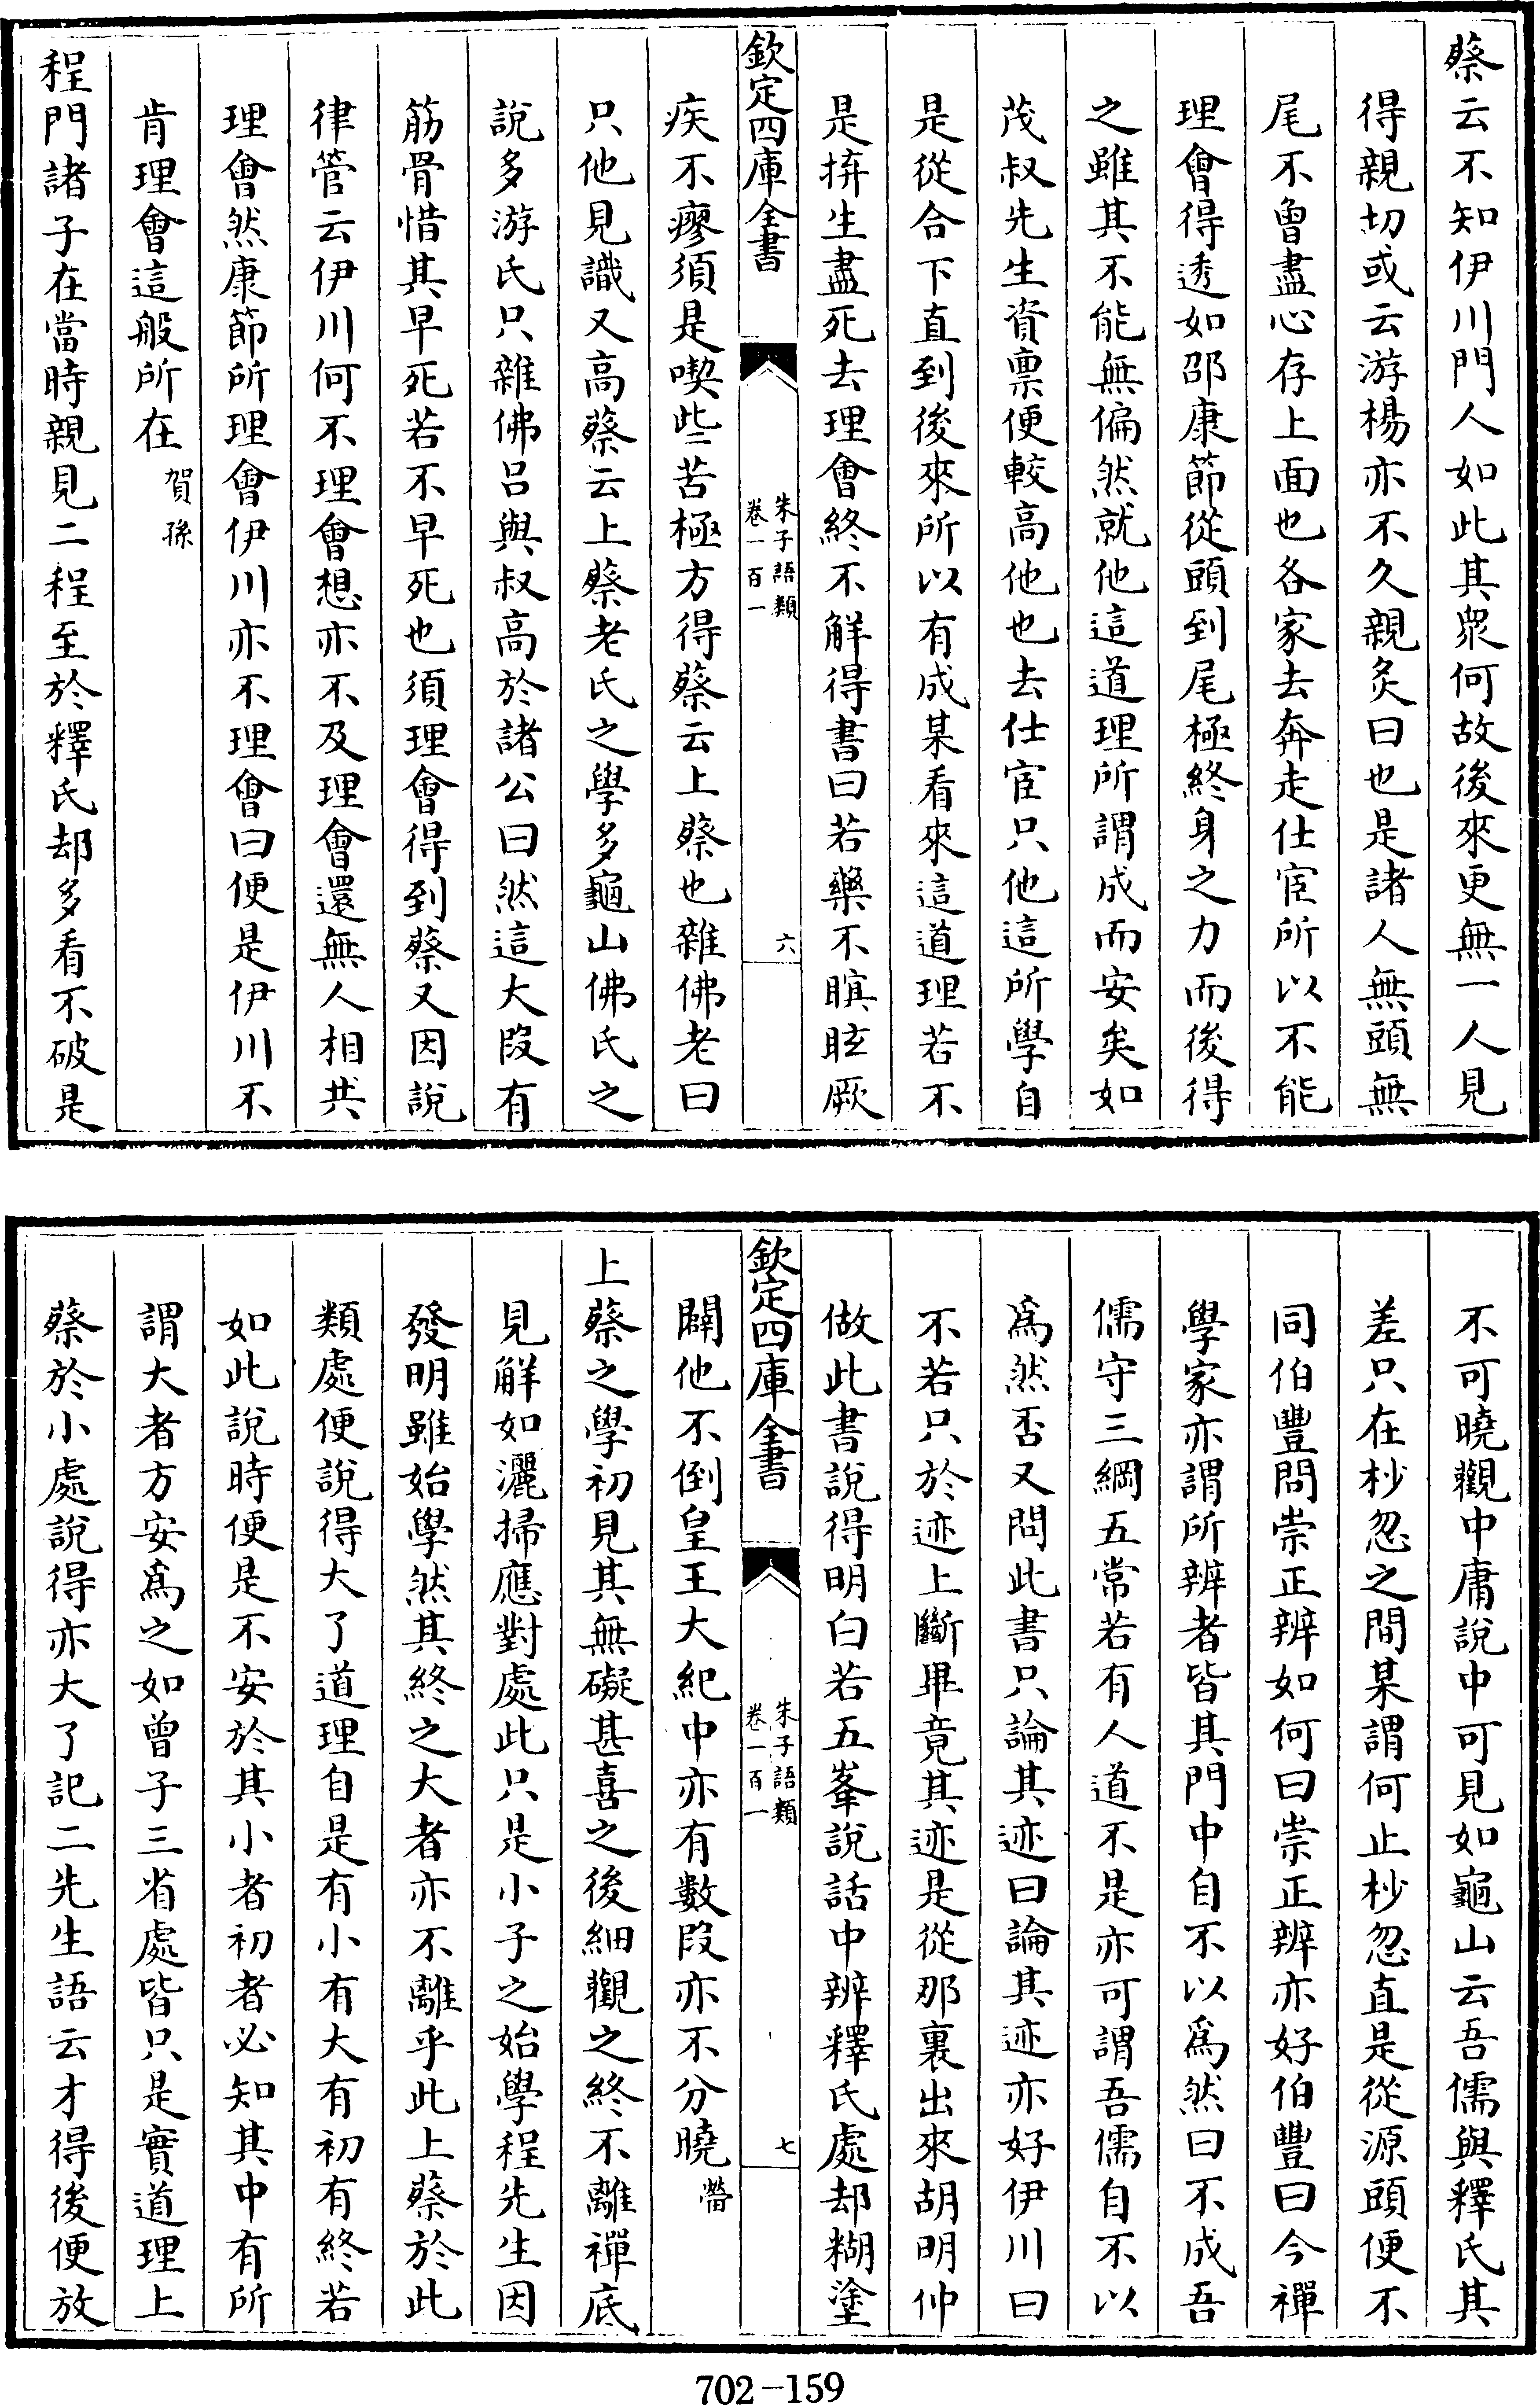 蔡云不知伊川門人如此其衆何故後來更無一人見
得親切或云游楊亦不久親炙曰也是諸人無頭無
尾不曾盡心存上面也各家去奔走仕宦所以不能
理會得透如邵康節從頭到尾極終身之力而後得
之雖其不能無偏然就他這道理所謂成而安矣如
茂叔先生資禀便較高他也去仕宦只他這所學自
是從合下直到後來所以有成某看來這道理若不
是拚生盡死去理會終不解得書曰若藥不瞑眩厥
欽定四庫全書
朱子語類
卷一百一
六
疾不瘳須是喫些苦極方得蔡云上蔡也雜佛老曰
只他見識又高蔡云上蔡老氏之學多龜山佛氏之
說多游氏只雜佛吕與叔高於諸公曰然這大段有
筋骨惜其早死若不早死也須理會得到蔡又因說
律管云伊川何不理會想亦不及理會還無人相共
理會然康節所理會伊川亦不理會曰便是伊川不
肯理會這般所在賀孫
程門諸子在當時親見二程至於釋氏却多看不破是
不可曉觀中庸說中可見如龜山云吾儒與釋氏其
差只在杪忽之間某謂何止杪忽直是從源頭便不
同伯豐問崇正辨如何曰崇正辨亦好伯豐曰今禪
學家亦謂所辨者皆其門中自不以為然曰不成吾
儒守三綱五常若有人道不是亦可謂吾儒自不以
為然否又問此書只論其迹曰論其迹亦好伊川曰
不若只於迹上斷畢竟其迹是從那裏出來胡明仲
做此書說得明白若五峯說話中辨釋氏處却糊塗
欽定四庫全書
朱子語類
卷一百一
七
闢他不倒皇王大紀中亦有數段亦不分曉㽦
上蔡之學初見其無礙甚喜之後細觀之終不離禪底
見解如灑掃應對處此只是小子之始學程先生因
發明雖始學然其終之大者亦不離乎此上蔡於此
類處便說得大了道理自是有小有大有初有終若
如此說時便是不安於其小者初者必知其中有所
謂大者方安為之如曾子三省處皆只是實道理上
蔡於小處說得亦大了記二先生語云才得後便放
702-159